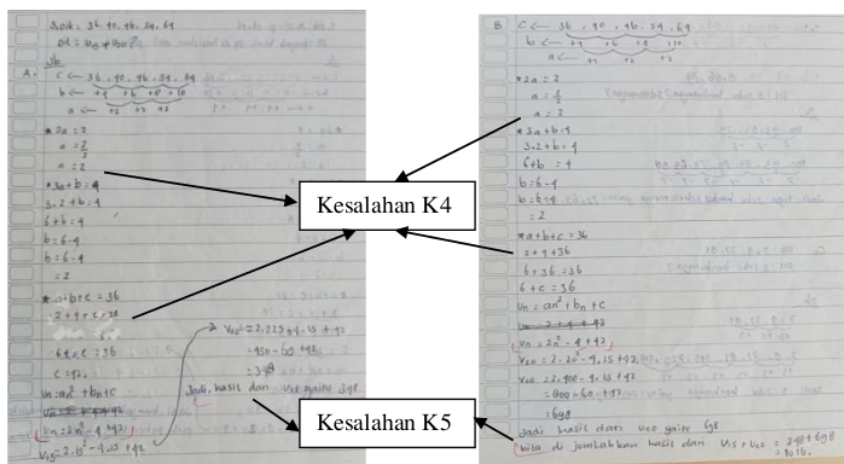 36, 40, 46, 54, 64
A.
C ← 36, 40, 46, 54, 64
b ← +4 +6 +8 +10
a ← +2 +2 +2
* 2a = 2
a = 2/2
a = 2
* 3a + b = 4
3.2 + b = 4
6 + b = 4
b = 6 - 4
b = 6 - 4
= 2
* a + b + c = 36
2 + 4 + c = 36
6 + c = 36
c = 42,
Un = an² + bn + c
Un = 2n² - 4 + 42
U15 = 2.15² - 4.15 + 42
= 2.225 + 4.15 + 42
= 450 - 60 + 42
Jadi, hasil dari U15 yaitu
Kesalahan K4
Kesalahan K5
B
C ← 36, 40, 46, 54, 64
b ← +4 +6 +8 +10
a ← +2 +2 +2
* 2a = 2
a = 2
* 3a + b = 4
3.2 + b = 4
6 + b = 4
b = 6 - 4
= 2
* a + b + c = 36
2 + 4 + 36
6 + 36 = 36
6 + c = 36
Un = an² + bn + c
Un = 2 + 4 + 42
Un = 2n² - 4 + 42
U20 = 2.20² - 4.15 + 42
U20 = 2.400 - 4.15 + 42
= 800 - 60 + 42
= 698
Jadi hasil dari U20 yaitu 698
bila di jumlahkan hasil dari U15 + U20 = 348 + 698
= 1016.